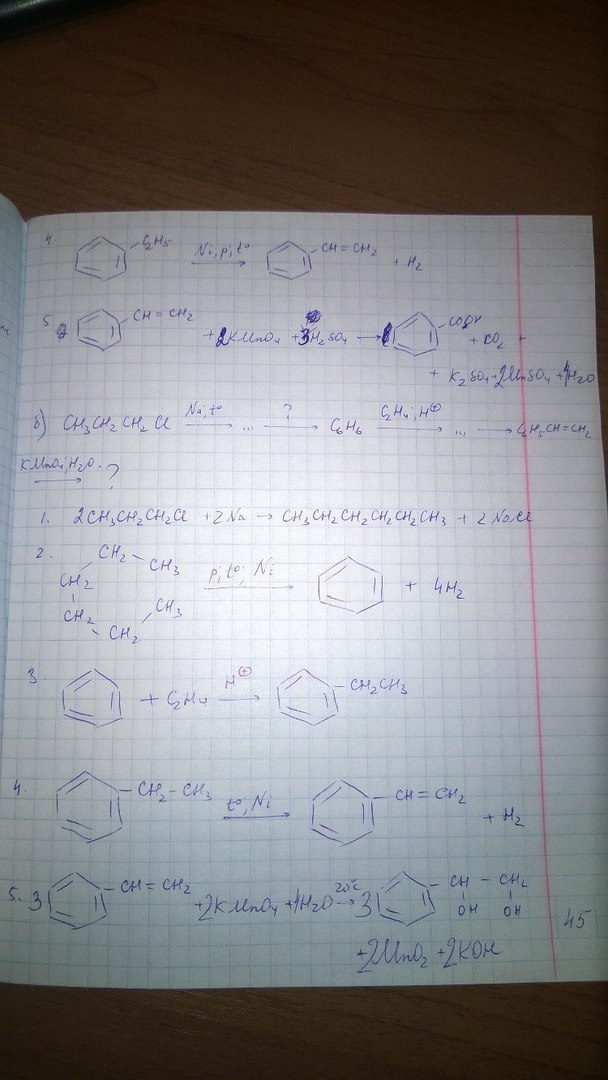 4. C₂H₅ Ni, p, t° → CH=CH₂ + H₂
5. CH=CH₂ + 2KMnO₄ + 3H₂SO₄ → COOH + CO₂ +
+ K₂SO₄ + 2MnSO₄ + 4H₂O
б) CH₃CH₂CH₂Cl Na, t° → ... ? → C₆H₆ C₂H₄; H⊕ → ... → C₆H₅CH=CH₂
KMnO₄; H₂O → ?
1. 2CH₃CH₂CH₂Cl + 2Na → CH₃CH₂CH₂CH₂CH₂CH₃ + 2NaCl
2. CH₂ - CH₃
CH₂
CH₂ CH₃
CH₂
p, t°, Ni → + 4H₂
3. + C₂H₄ H⊕ → CH₂CH₃
4. CH₂-CH₃ t°, Ni → CH=CH₂ + H₂
5. 3 CH=CH₂ + 2KMnO₄ + 4H₂O 20°C → 3 CH - CH₂
OH OH
+2MnO₂ + 2KOH
45